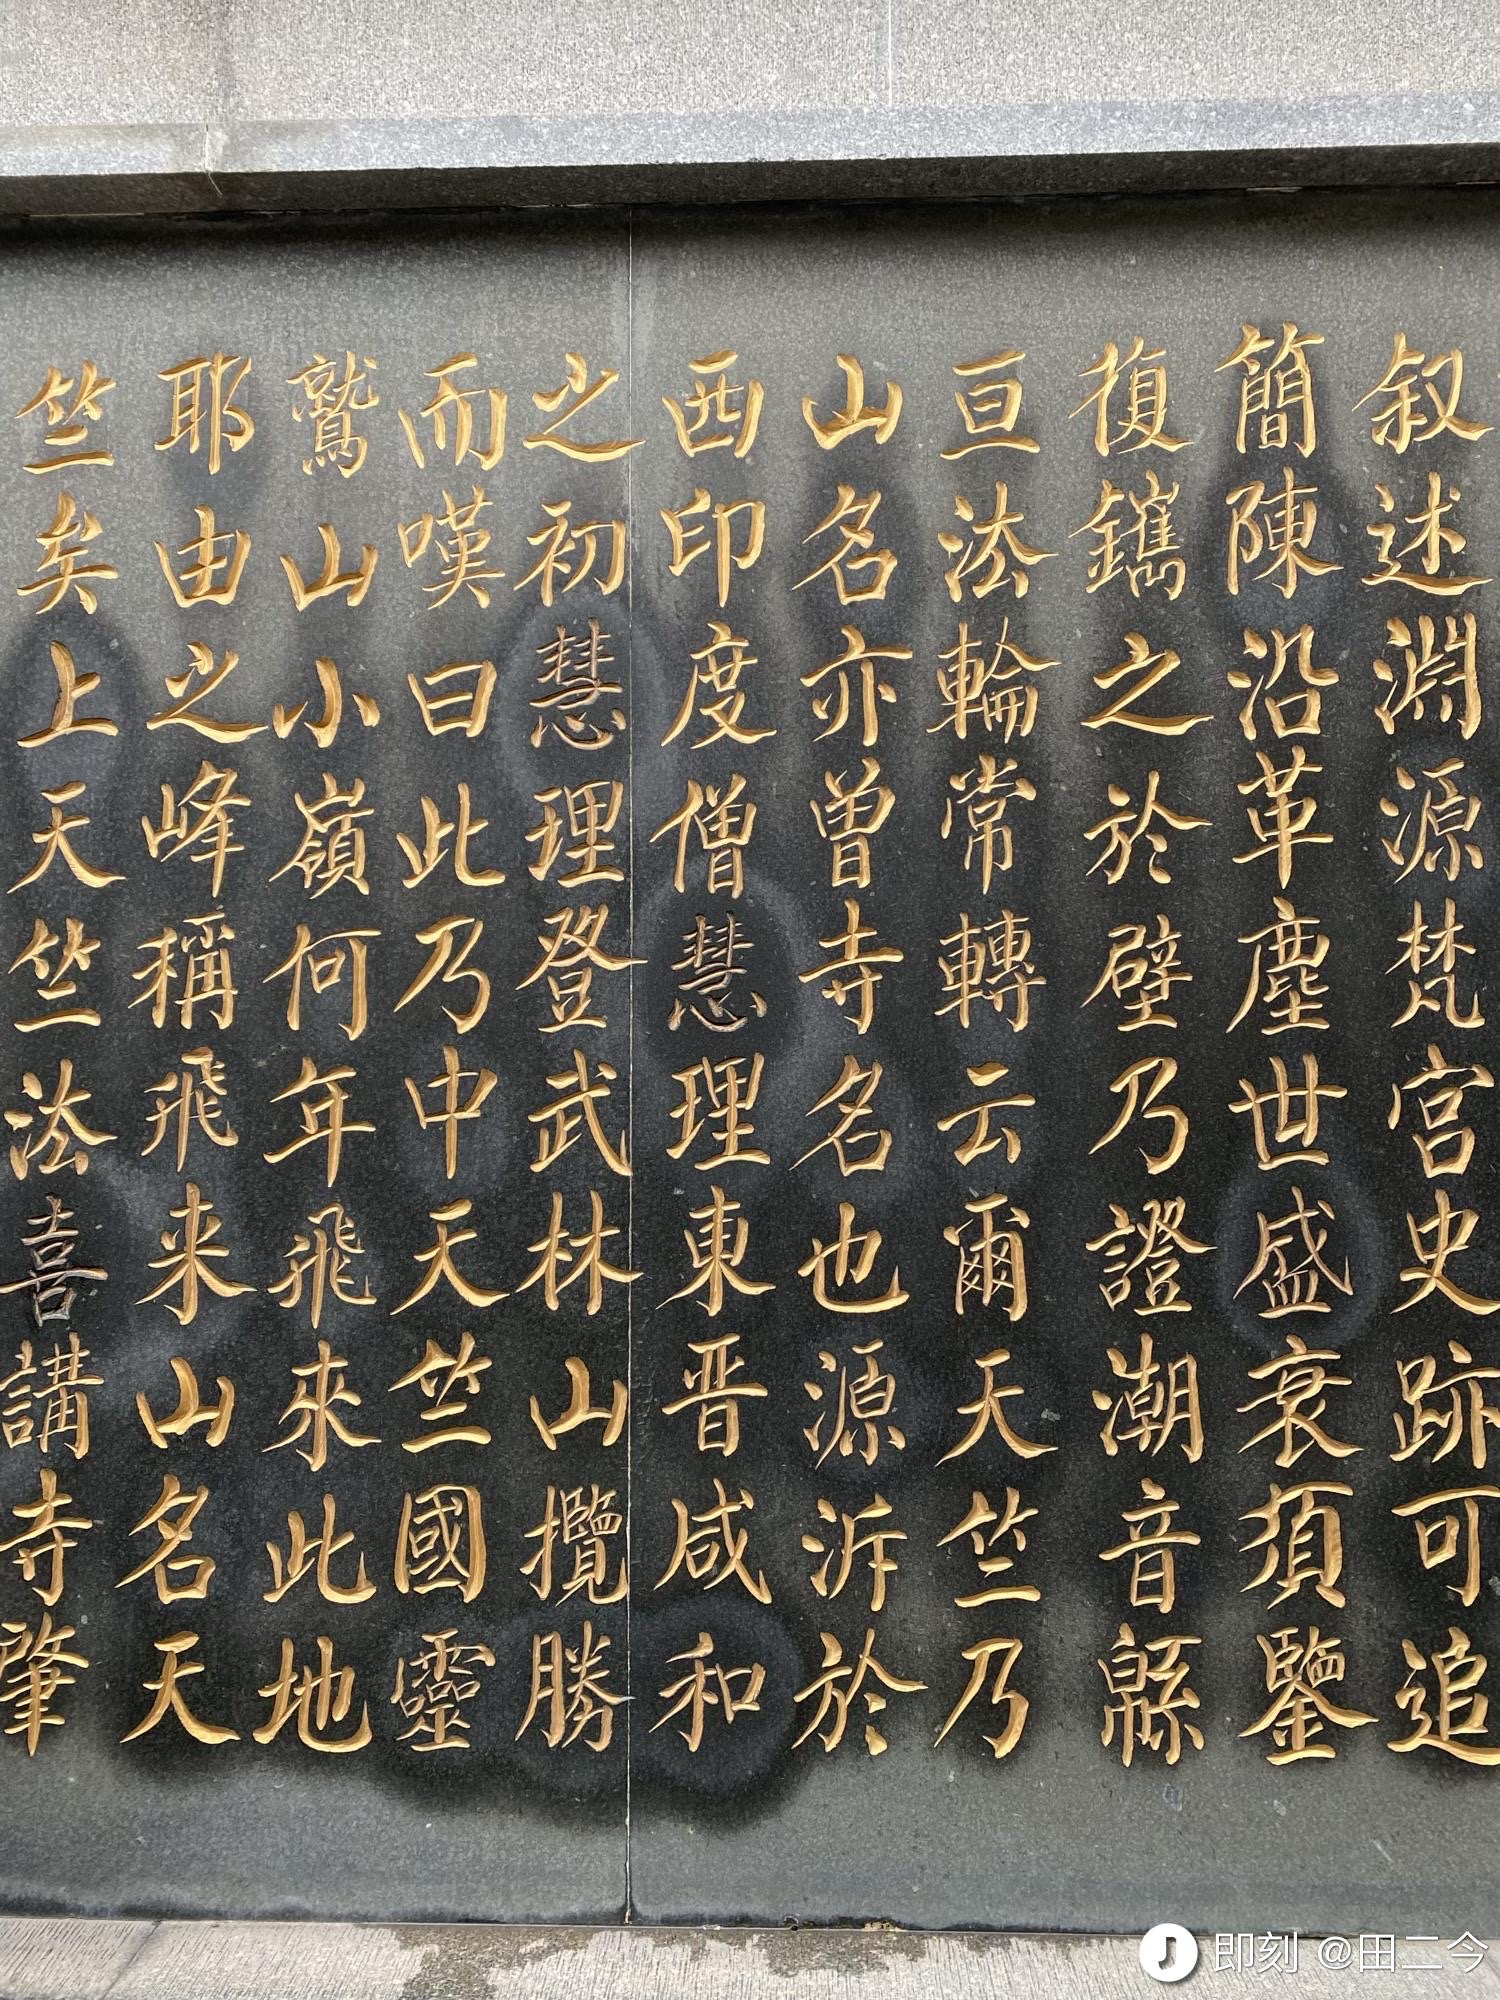 叙述淵源梵宫史跡可追
簡陳沿革塵世盛衰須鑒
復鐫之於壁乃證潮音緜
亘法輪常轉云爾天竺乃
山名亦曾寺名也源泝於
西印度僧慧理東晋咸和
之初慧理登武林山攬勝
而嘆曰此乃中天竺國靈
鷲山小嶺何年飛來此地
耶由之峰稱飛来山名天
竺矣上天竺法喜講寺肇
即刻 @田二今